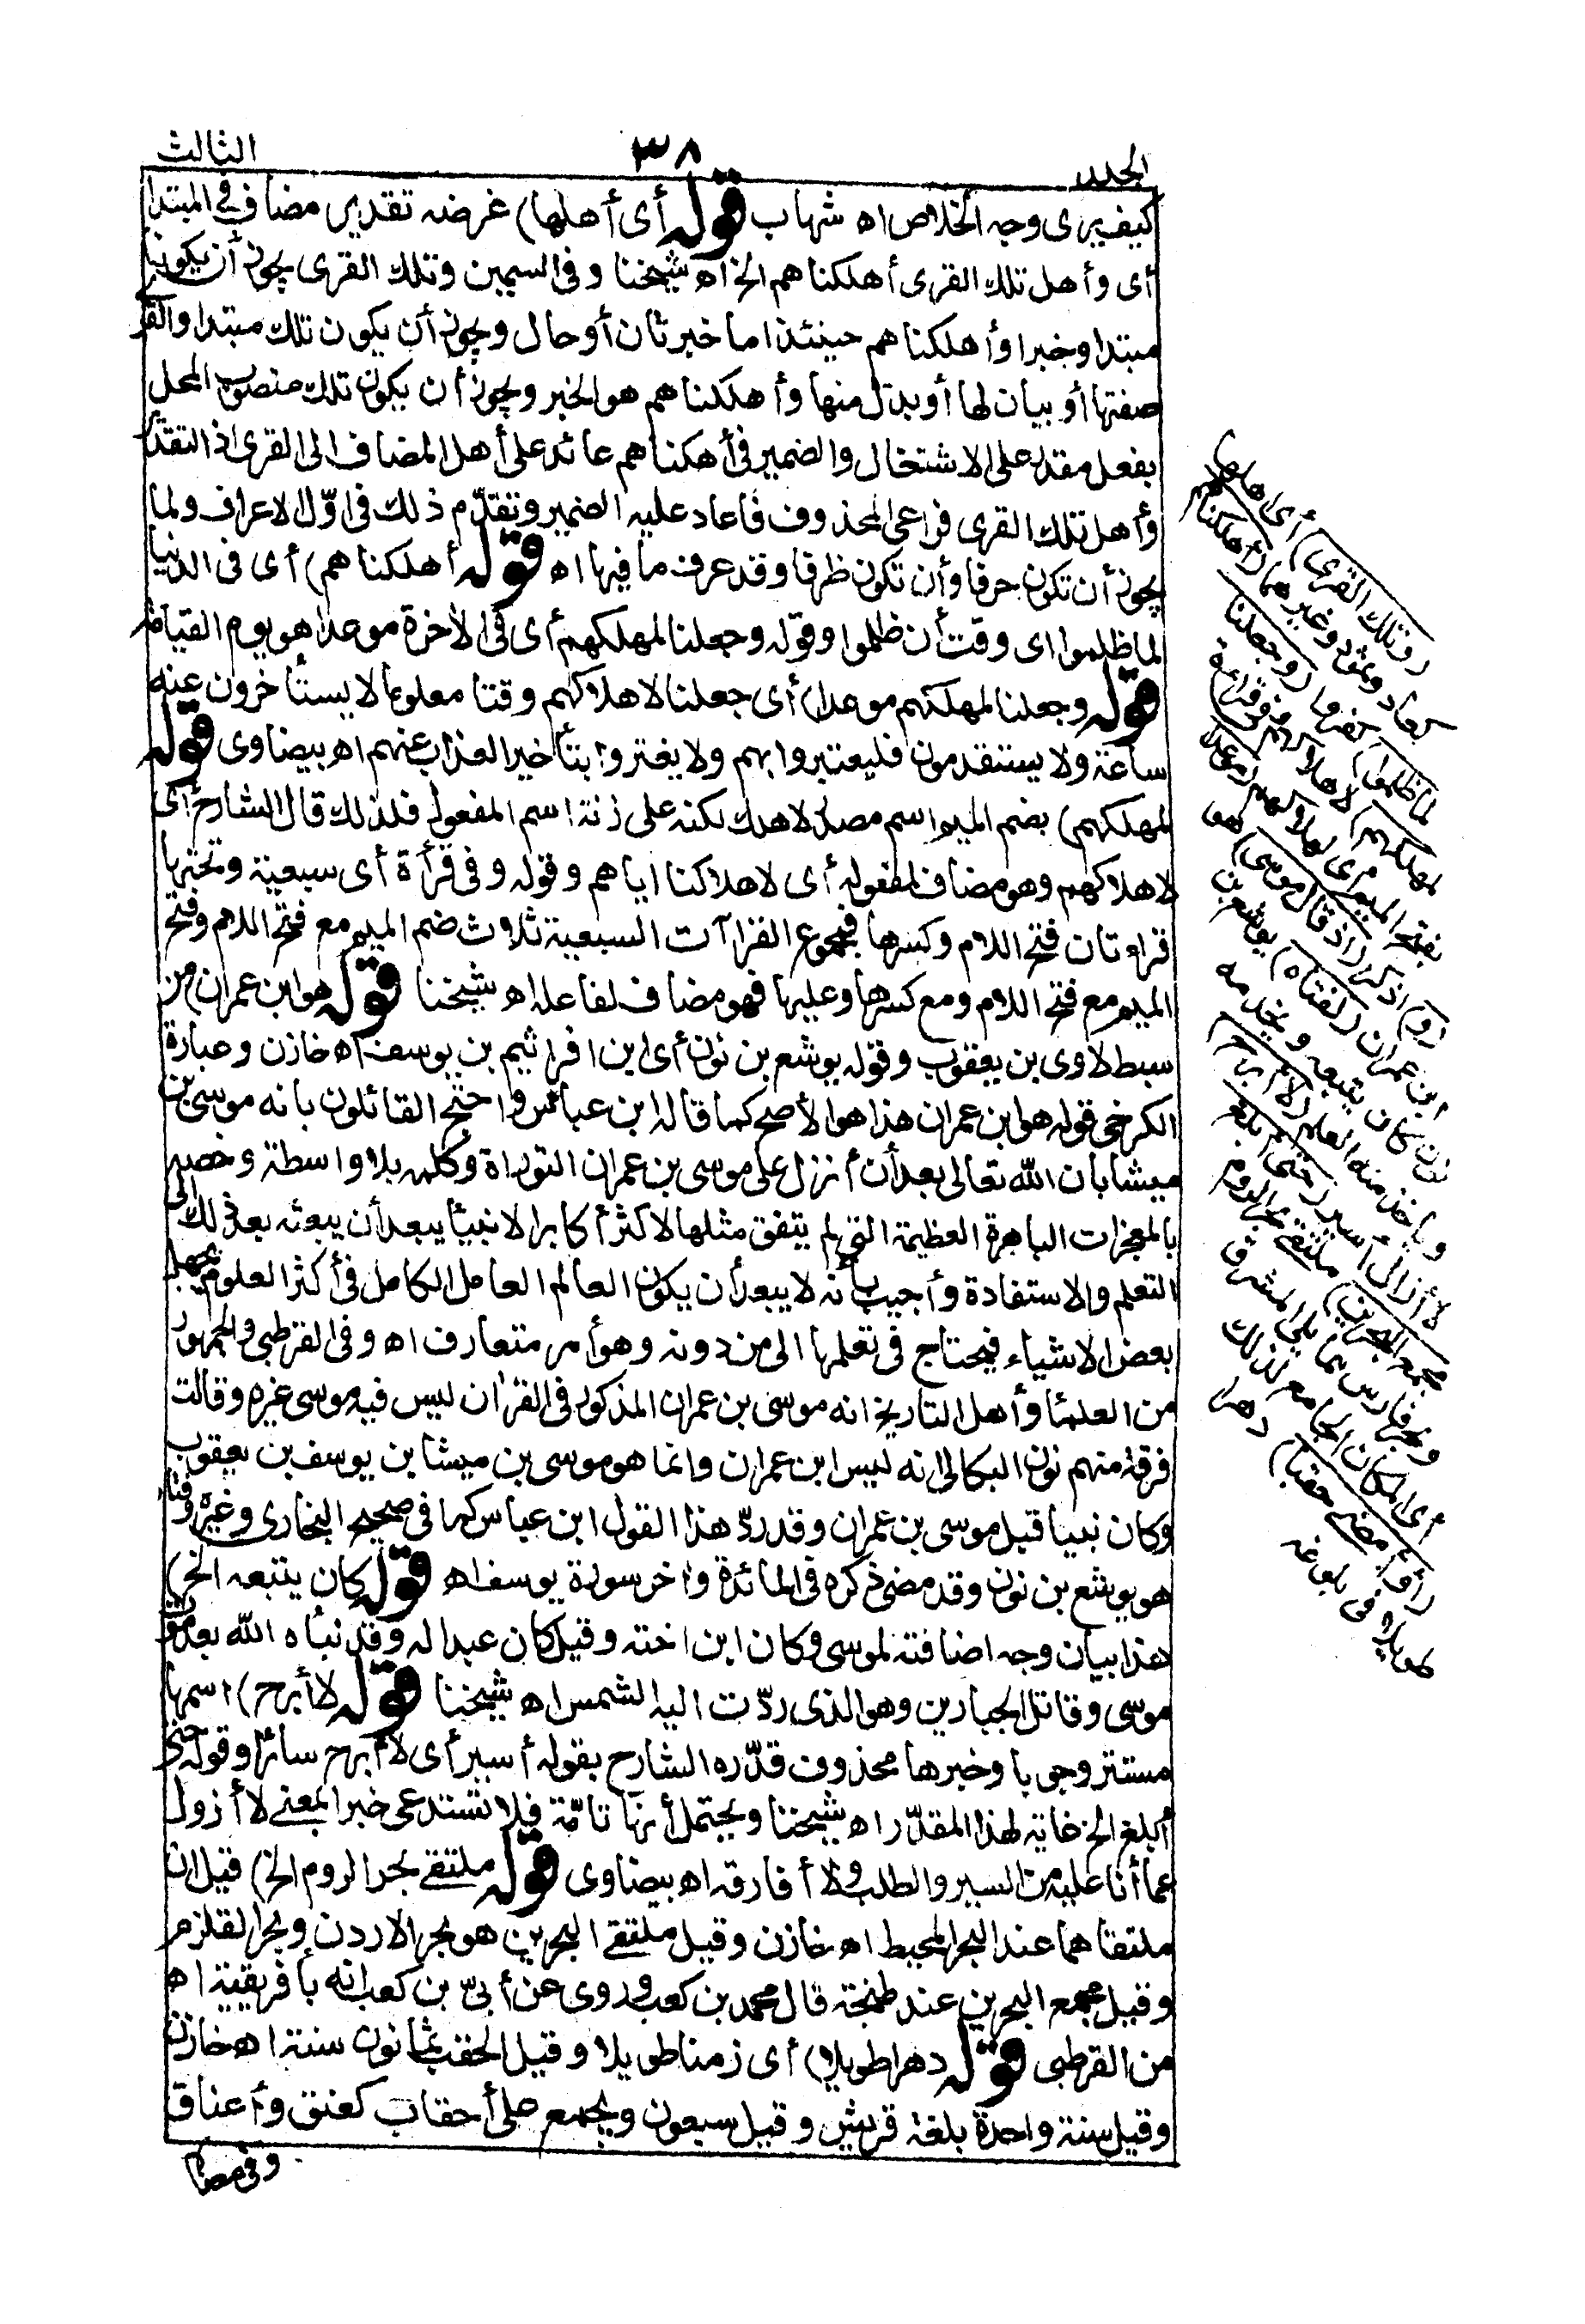 الجلد ٣٨ الثالث
كيف يرى وجه الخلاص اه شهاب قوله أى أهلها) غرضه تقدير مضاف فى المبتدا
أى وأهل تلك القرى أهلكناهم الخ اه شيخنا وفى السمين وتلك القرى يجوز أن يكونا
مبتدا وخبرا وأهلكناهم حينئذ اما خبر ثان أو حال ويجوز أن يكون تلك مبتدا والقر
صفتها أو بيان لها أو بدل منها وأهلكناهم هو الخبر ويجوز أن يكون تلك منصوب المحل
بفعل مقدر على الاشتغال والضمير فى أهكناهم عائد على أهل المضاف الى القرى اذ التقد
وأهل تلك القرى فراعى المحذوف فأعاد عليه الضمير وتقدّم ذلك فى اوّل الاعراف ولما
يجوز أن تكون حرفا وأن تكون ظرفا وقد عرف ما فيها اه قوله أهلكناهم) أى فى الدنيا
لما ظلموا اى وقت أن ظلموا وقوله وجعلنا لمهلكهم أى فى الأخرة موعدا هو يوم القيامة
قوله وجعلنا لمهلكهم موعدا) أى جعلنا لاهلاكهم وقتا معلوما لا يستأخرون عنه
ساعة ولا يستقدمون فليعتبروا بهم ولا يغتروا بتأخير العذاب عنهم اه بيضاوى قوله
لمهلكهم) بضم الميم اسم مصدر لاهلك لكنه على زنة اسم المفعول فلذلك قال الشارح أى
لاهلاكهم وهو مضاف لمفعوله أى لاهلاكنا اياهم وقوله وفى قرأة أى سبعية وتحتها
قراءتان فتح اللام وكسرها فمجموع القرآآت السبعية ثلاث ضم الميم مع فتح اللام وفتح
الميم مع فتح اللام ومع كسرها وعليها فهو مضاف لفاعله اه شيخنا قوله هو ابن عمران) من
سبط لاوى بن يعقوب وقوله يوشع بن نون أى ابن افرائيم بن يوسف اه خازن وعبارة
الكرخى قوله هو ابن عمران هذا هو الأصح كما قاله ابن عباس واحتج القائلون بانه موسى بن
ميشا بان الله تعالى بعد أن أنزل على موسى بن عمران التوراة وكلمه بلا واسطة وخصه
بالمعجزات الباهرة العظيمة التى لم يتفق مثلها لاكثر أكابر الانبيأ يبعد أن يبعثه بعد ذلك الى
التعلم والاستفادة وأجيب بأنه لا يبعد أن يكون العالم العامل الكامل فى أكثر العلوم يجهل
بعض الاشياء فيحتاج فى تعلمها الى من دونه وهو أمر متعارف اه وفى القرطبى والجمهور
من العلمأ وأهل التاريخ انه موسى بن عمران المذكور فى القرأن ليس فيه موسى غيره وقالت
فرقة منهم نون البكالى انه ليس ابن عمران وانما هو موسى بن ميشا بن يوسف بن يعقوب
وكان نبيا قبل موسى بن عمران وقد ردّ هذا القول ابن عباس كما فى صحيح البخارى وغيره وفتاه
هو يوشع بن نون وقد مضى ذكره فى المائدة وأخر سورة يوسف اه قوله كان يتبعه الخ)
هذا بيان وجه اضافته لموسى وكان ابن اخته وقيل كان عبدا له وقد نبأه الله بعد موت
موسى وقاتل الجبارين وهو الذى ردّت اليه الشمس اه شيخنا قوله لا أبرح) اسمها
مستتر وجوبا وخبرها محذوف قدّره الشارح بقوله أسير أى لا أبرح سائرا وقوله حتى
أبلغ الخ غاية لهذا المقدّر اه شيخنا ويحتمل أنها تامّة فلا تستدعى خبرا بمعنى لا أزول
عما أنا عليه من السير والطلب ولا أفارقه اه بيضاوى قوله ملتقى بحر الروم الخ) قيل ان
ملتقاهما عند البحر المحيط اه خازن وقيل ملتقى البحرين هو بحر الاردن وبحر القلزم
وقيل مجمع البحرين عند طنجة قال محمد بن كعب وروى عن أبىّ بن كعب انه بأفريقية اه
من القرطبى قوله دهرا طويلا) أى زمنا طويلا وقيل الحقب ثمانون سنة اه خازن
وقيل سنة واحدة بلغة قريش وقيل سبعون ويجمع على أحقاب كعنق وأعناق
وفى
(وتلك القرى) أى أهلها
كعاد وثمود وغيرهما (أهلكناهم
لما ظلموا) كفروا (وجعلنا
لمهلكهم) لاهلاكهم وفى قراءة
بفتح الميم أى لهلاكهم (موعدا
(و) اذكر (اذ قال موسى) هو
ابن عمران (لفتاه) يوشع بن
نون كان يتبعه ويخدمه
ويأخذ منه العلم (لا أبرح)
لا أزال أسير (حتى أبلغ
مجمع البحرين) ملتقى بحر الروم
وبحر فارس مما يلى المشرق
أى المكان الجامع لذلك
(أو أمضى حقبا) دهرا
طويلا فى بلوغه